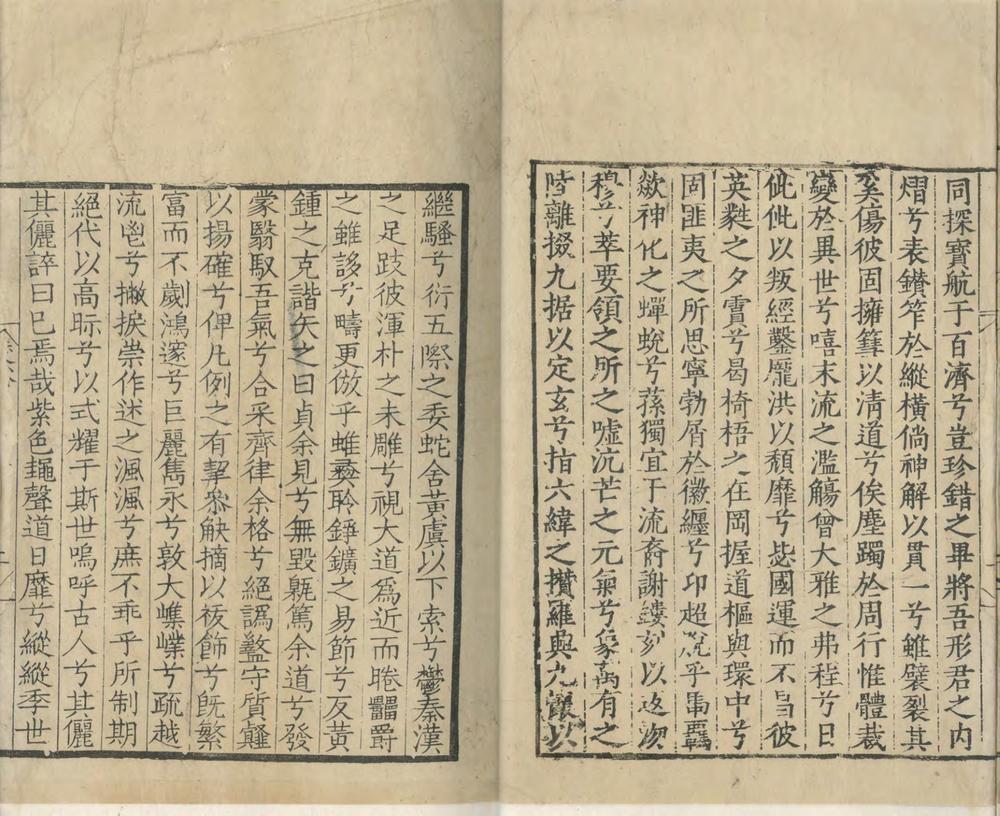 同探寶航于百濟兮豈珍錯之畢將吾形君之内
熠兮表鑚笮於縱橫倘神解以貫一兮雖襞裂其
奚傷彼固擁篲以清道兮俟塵躅於周行惟體裁
變於異世兮嘻末流之濫觴曾大雅之弗程兮日
佌佌以叛經鑿龐洪以頹靡兮毖國運而不昌彼
英蕤之夕霣兮曷椅梧之在岡握道樞與環中兮
固匪夷之所思寧勃屑於徽纆兮卬超乎馽羈
歘神化之蟬蛻兮蓀獨宜于流裔謝鏤刻以返淴
穆兮萃要領之所之嘘沆芒之元氣兮象萬有之
陸離掇九据以定玄兮指六緯之攢羅與九以
繼騷兮衍五際之委蛇舍黃虞以下索兮鬱秦漢
之足跂彼渾朴之未雕兮視大道爲近而睠罍爵
之雖誃兮疇更倣乎蜼彝聆錚鑛之易節兮反黃
鍾之克諧矢之曰貞余見兮無毀甈篤余道兮發
蒙翳馭吾氣兮合采齊律余格兮絕譌盭守質嬞
以揚確兮俾凡例之有挈叅觖摘以袚飾兮旣繁
富而不劌鴻邃兮巨麗雋永兮敦大嶕嶫兮疏越
流鬯兮撇捩崇作述之渢渢兮庶不乖乎所制期
絕代以高眎兮以式耀于斯世嗚呼古人兮其儷
其儷誶曰已焉哉紫色䵷聲道日靡兮縱縱季世